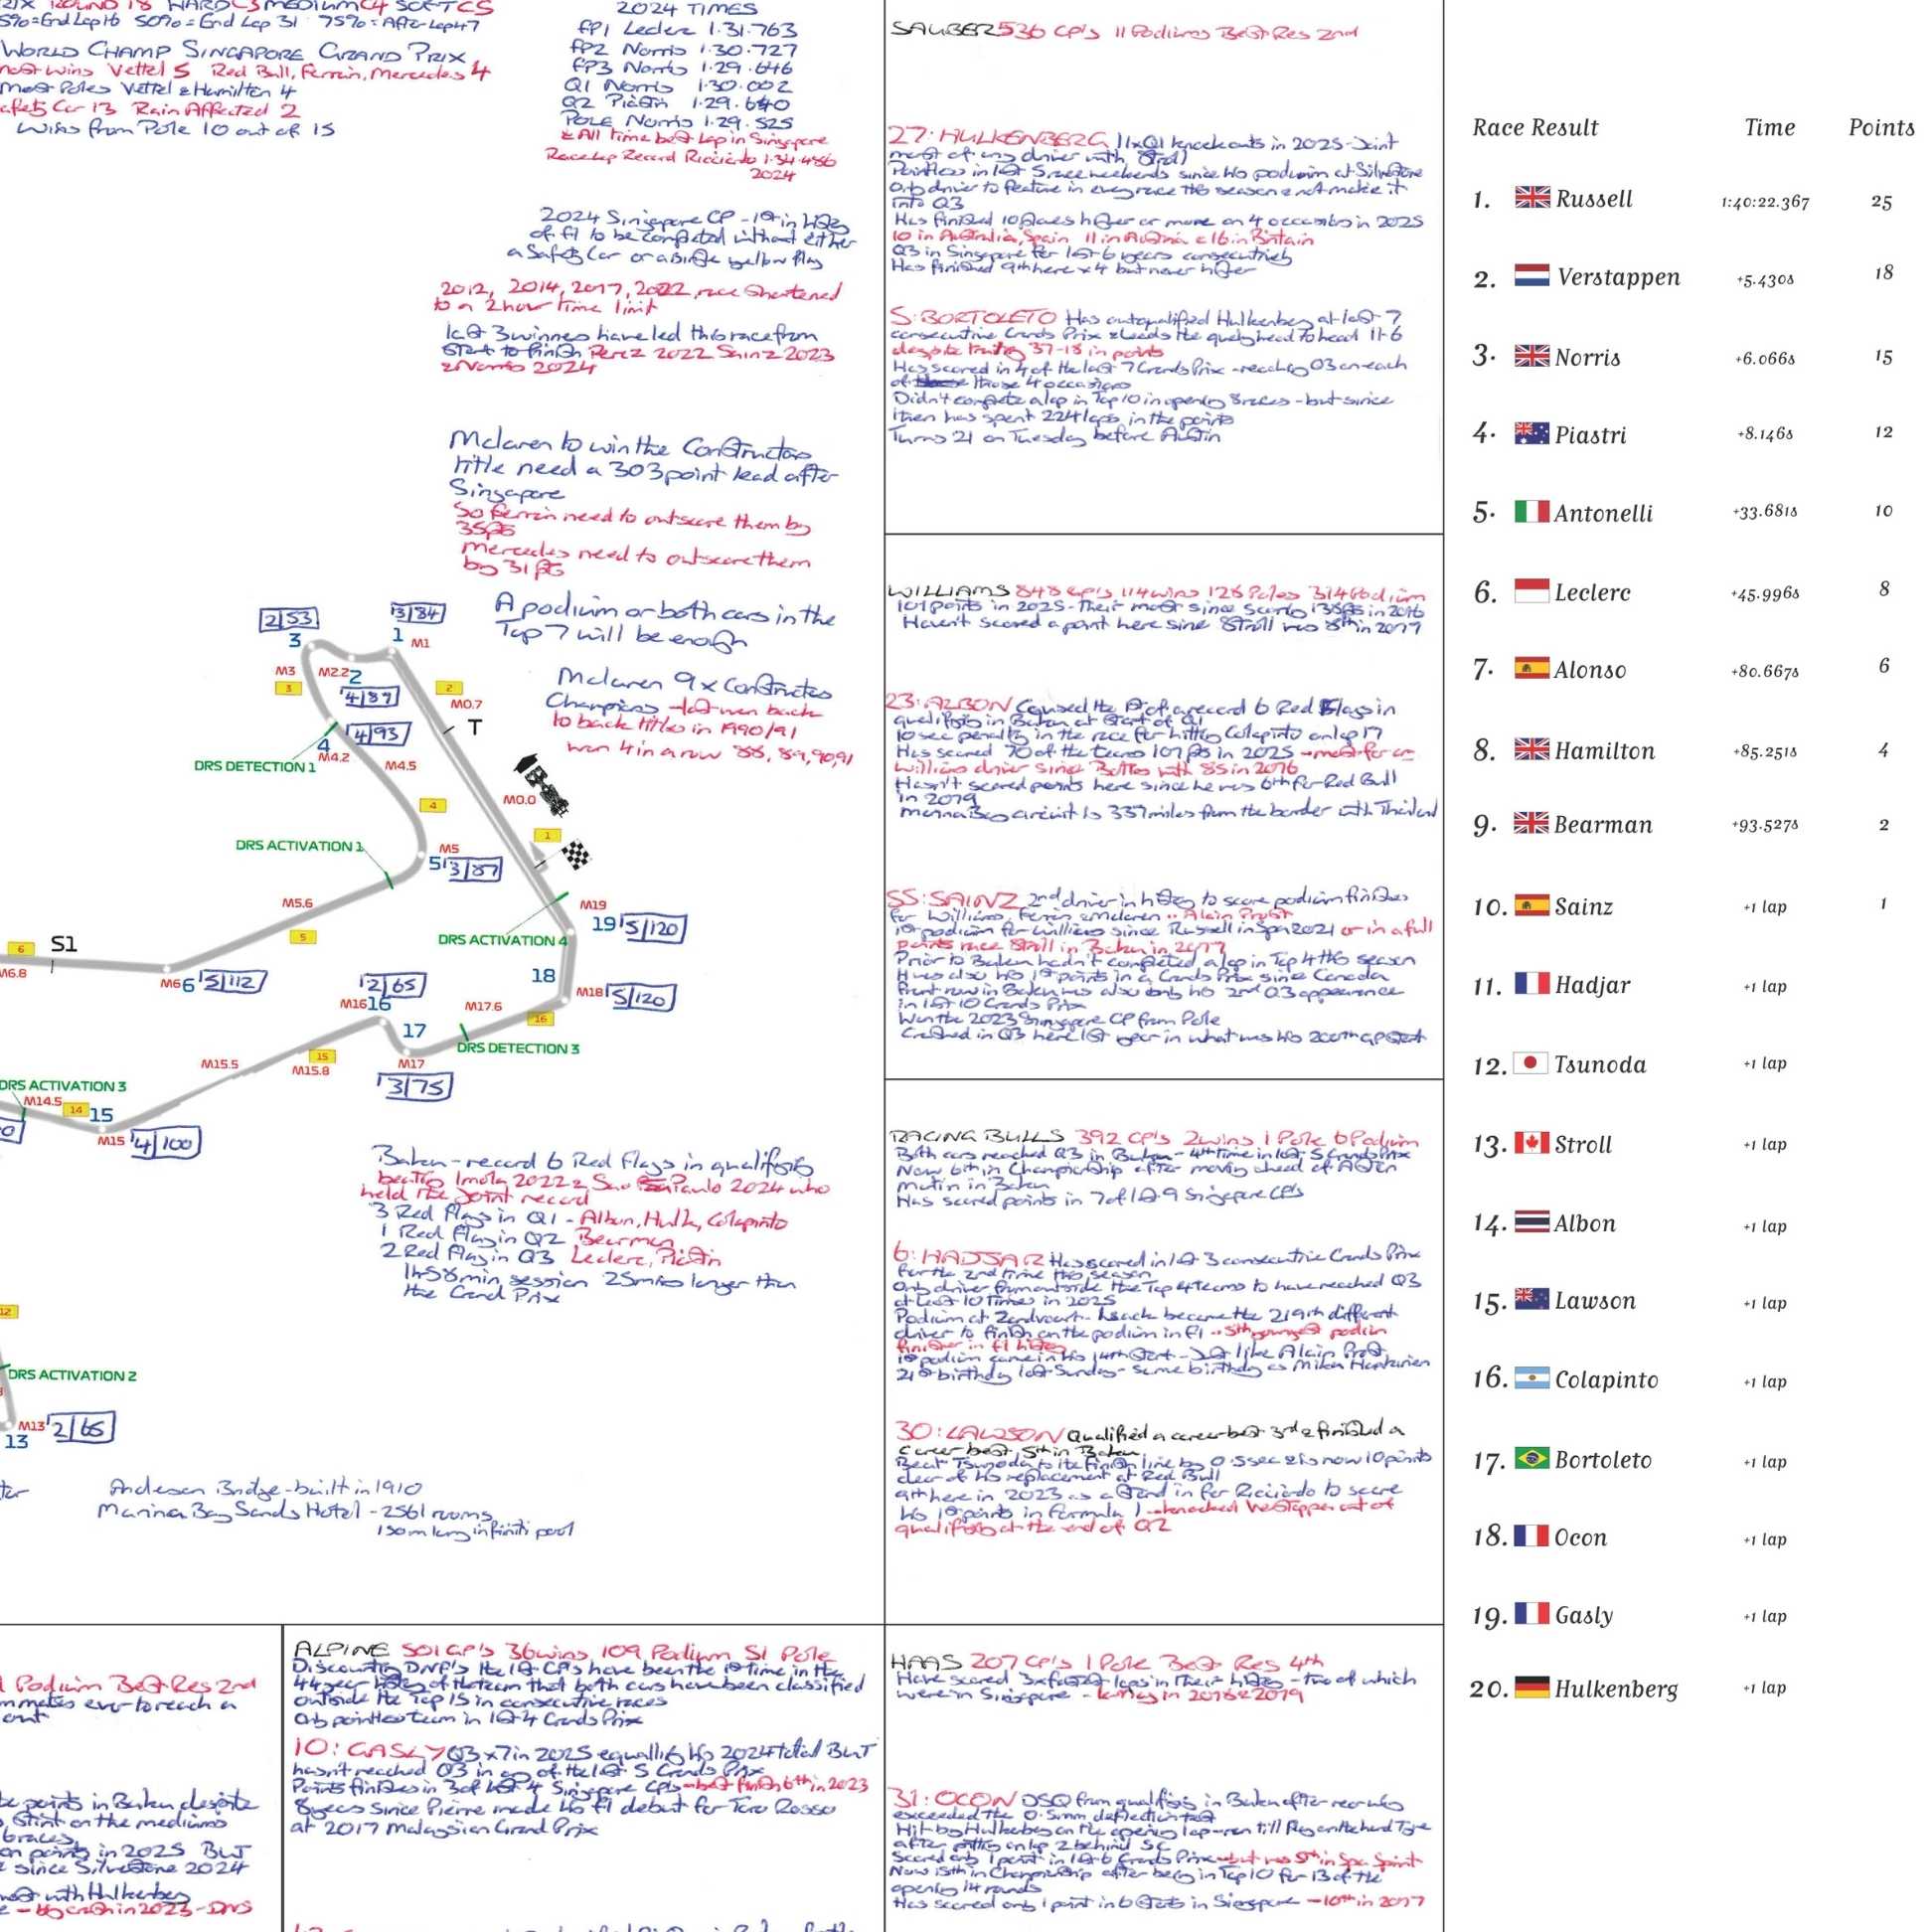 ROUND 18 HARD C3 MEDIUM C4 SOFT C5
End Lap 16 50% = End Lap 31 75% = After Lap 47
WORLD CHAMP SINGAPORE GRAND PRIX
most wins Vettel 5 Red Bull, Ferrari, Mercedes 4
most Poles Vettel & Hamilton 4
Safety Car 13 Rain Affected 2
Wins from Pole 10 out of 15
2024 TIMES
FP1 Leclerc 1.31.763
FP2 Norris 1.30.727
FP3 Norris 1.29.646
Q1 Norris 1.30.002
Q2 Piastri 1.29.640
POLE Norris 1.29.525
& All time best lap in Singapore
Race Lap Record Ricciardo 1.34.486
2024
2024 Singapore GP - 1st in history
of F1 to be completed without either
a Safety Car or a single yellow flag
2012, 2014, 2017, 2022 race shortened
to a 2 hour time limit
last 3 winners have led this race from
start to finish Perez 2022 Sainz 2023
& Norris 2024
Mclaren to win the Constructors
title need a 303 point lead after
Singapore
So Ferrari need to outscore them by
35pts
Mercedes need to outscore them
by 31 pts
A podium or both cars in the
Top 7 will be enough
Mclaren 9x Constructors
Champions - last won back
to back titles in 1990/91
won 4 in a row 88, 89, 90, 91
2/53
3/84
3
1
M1
M3
M2.2
2
3
4/89
2
M0.7
T
4/93
4
M4.2
DRS DETECTION 1
M4.5
M0.0
4
1
DRS ACTIVATION 1
M5
5
3/87
M5.6
M19
19
5/120
5
DRS ACTIVATION 4
6
S1
M6.8
M6
6
5/112
18
2/65
M16
16
M17.6
M18
5/120
16
17
DRS DETECTION 3
M15.5
15
M15.8
M17
3/75
DRS ACTIVATION 3
M14.5
14
15
M15
4/100
Baku - record 6 Red Flags in qualifying
beating Imola 2022 & Sao Paulo 2024 who
held the joint record
3 Red Flags in Q1 - Albon, Hulk, Colapinto
1 Red Flag in Q2 Bearman
2 Red Flag in Q3 Leclerc, Piastri
1hr58min session 25mins longer than
the Grand Prix
12
DRS ACTIVATION 2
M13
2/65
13
Anderson Bridge - built in 1910
Marina Bay Sands Hotel - 2561 rooms
150m long infiniti pool
SAUBER 536 GP's 11 Podiums Best Res 2nd
27: HULKENBERG 11xQ1 knockouts in 2025 - Joint
most of any driver with Stroll
Pointless in last 5 race weekends since his podium at Silverstone
Only driver to feature in every race this season & not make it
into Q3
Has finished 10 places higher or more on 4 occasions in 2025
10 in Australia, Spain 11 in Austria & 16 in Britain
Q3 in Singapore for last 6 years consecutively
Has finished 9th here x4 but never higher
5: BORTOLETO Has outqualified Hulkenberg at last 7
consecutive Grands Prix & leads the qualy head to head 11-6
despite trailing 37-18 in points
Has scored in 4 of the last 7 Grands Prix - reaching Q3 on each
of those 4 occasions
Didn't complete a lap in Top 10 in opening 8 races - but since
then has spent 224 laps in the points
Turns 21 on Tuesday before Austin
WILLIAMS 848 GP's 114 wins 128 Poles 314 Podium
101 points in 2025 - Their most since scoring 138pts in 2016
Haven't scored a point here since Stroll was 8th in 2017
23: ALBON Caused the 1st of a record 6 Red Flags in
qualifying in Baku at start of Q1
10 sec penalty in the race for hitting Colapinto on lap 17
Has scored 70 of the teams 101 pts in 2025 - most for a
Williams driver since Bottas with 85 in 2016
Hasn't scored points here since he was 6th for Red Bull
in 2019
Marina Bay circuit is 337 miles from the border with Thailand
55: SAINZ 2nd driver in history to score podium finishes
for Williams, Ferrari & Mclaren .. Alain Prost
1st podium for Williams since Russell in Spa 2021 or in a full
points race Stroll in Baku in 2017
Prior to Baku hadn't completed a lap in Top 4 this season
It was also his 1st points in a Grands Prix since Canada
Front row in Baku was also only his 2nd Q3 appearance
in last 10 Grands Prix
Won the 2023 Singapore GP from Pole
Crashed in Q3 here last year in what was his 200th GP start
RACING BULLS 392 GP's 2 wins 1 Pole 6 Podium
Both cars reached Q3 in Baku - 4th time in last 5 Grands Prix
Now 6th in Championship after moving ahead of Aston
Martin in Baku
Has scored points in 7 of last 9 Singapore GP's
6: HADJAR Has scored in last 3 consecutive Grands Prix
for the 2nd time this season
Only driver from outside the Top 4 teams to have reached Q3
at least 10 times in 2025
Podium at Zandvoort - Isack became the 219th different
driver to finish on the podium in F1 .. 5th youngest podium
finisher in F1 history
1st podium came in his 14th start - Just like Alain Prost
21st birthday last Sunday - same birthday as Mika Hakkinen
30: LAWSON Qualified a career best 3rd & finished a
career best 5th in Baku
Beat Tsunoda to the finish line by 0.5sec & is now 10 points
clear of his replacement at Red Bull
9th here in 2023 as a stand in for Ricciardo to score
his 1st points in Formula 1 - knocked Verstappen out of
qualifying at the end of Q2
Podium Best Res 2nd
ever to reach a
points in Baku despite
stint on the mediums
on points in 2025 BUT
since Silverstone 2024
with Hulkenberg
- big crash in 2023 - DNS
ALPINE 501 GP's 36 wins 109 Podium 51 Pole
Discounting DNF's the last GP's have been the 1st time in the
44 year history of the team that both cars have been classified
outside the Top 15 in consecutive races
Only pointless team in last 4 Grands Prix
10: GASLY Q3 x7 in 2025 equalling his 2024 total BUT
hasn't reached Q3 in any of the last 5 Grands Prix
Points finishes in 3 of last 4 Singapore GP's - best finish 6th in 2023
8 years since Pierre made his F1 debut for Toro Rosso
at 2017 Malaysian Grand Prix
HAAS 207 GP's 1 Pole Best Res 4th
Have scored 3xfastest laps in their history - two of which
were in Singapore - K Mag in 2018 & 2019
31: OCON DSQ from qualifying in Baku after rear wing
exceeded the 0.5mm deflection test
Hit by Hulkenberg on the opening lap - ran till Flag on the hard Tyre
after pitting on lap 2 behind SC
Scored only 1 point in last 6 Grands Prix - but was 5th in Spa Sprint
Now 15th in Championship after being in Top 10 for 13 of the
opening 14 rounds
Has scored only 1 point in 6 starts in Singapore - 10th in 2017
Race Result Time Points
1. Russell 1:40:22.367 25
2. Verstappen +5.430s 18
3. Norris +6.066s 15
4. Piastri +8.146s 12
5. Antonelli +33.681s 10
6. Leclerc +45.996s 8
7. Alonso +80.667s 6
8. Hamilton +85.251s 4
9. Bearman +93.527s 2
10. Sainz +1 lap 1
11. Hadjar +1 lap
12. Tsunoda +1 lap
13. Stroll +1 lap
14. Albon +1 lap
15. Lawson +1 lap
16. Colapinto +1 lap
17. Bortoleto +1 lap
18. Ocon +1 lap
19. Gasly +1 lap
20. Hulkenberg +1 lap